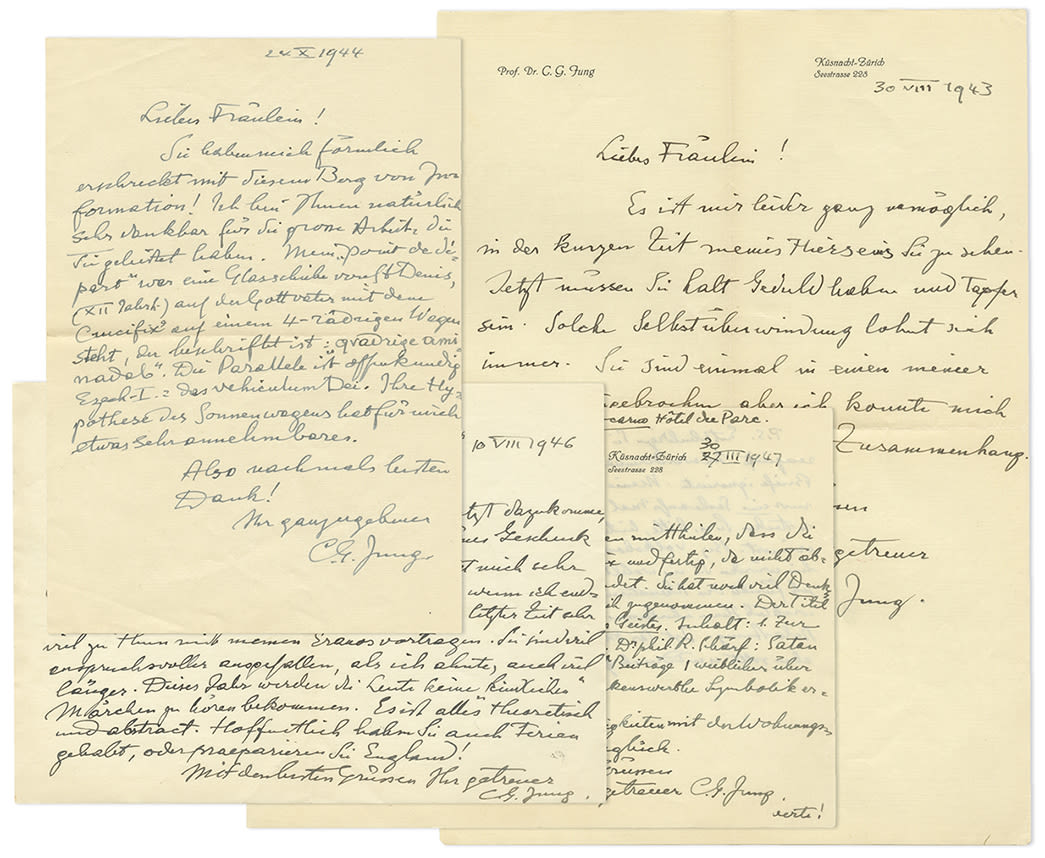 24 X 1944
Liebes Fräulein!
Sie haben mich förmlich
erschreckt mit diesem Berg von In-
formation! Ich bin Ihnen natürlich
sehr dankbar für die grosse Arbeit, die
Sie geleistet haben. Mein "point de dé-
part" war eine Glasscheibe von St Denis,
(XII Jahrh.) auf der Gottvater mit dem
Crucifix auf einem 4-rädrigen Wagen
steht, der beschriftet ist: "quadrige ami
nadab". Die Parallele ist offenkundig
Ezech. I. = das vehiculum Dei. Ihre Hy-
pothese des Sonnenwagens hat für mich
etwas sehr annehmbares.
Also nochmals besten
Dank!
Ihr ganz ergebener
C.G. Jung.
Prof. Dr. C. G. Jung
Küsnacht-Zürich
Seestrasse 228
30 VIII 1943
Liebes Fräulein!
Es ist mir leider ganz unmöglich,
in der kurzen Zeit meines Hierseins Sie zu sehen.
Jetzt müssen Sie halt Geduld haben und tapfer
sein. Solche Selbstüberwindung lohnt sich
immer. Sie sind einmal in einen meiner
aber ich konnte mich
Zusammenhang.
getreuer
Jung.
10 VIII 1946
dazukomme,
Geschenk
mich sehr
wenn ich erst
letzter Zeit sehr
viel zu thun mit meinen Eranosvorträgen. Sie sind viel
anspruchsvoller ausgefallen, als ich ahnte, auch viel
länger. Dieses Jahr werden die Leute keine
Märchen zu hören bekommen. Es ist alles theoretisch
und abstract. Hoffentlich haben Sie auch Ferien
gehabt, oder praeparieren Sie England!
Mit den besten Grüssen Ihr getreuer
C.G. Jung.
Hôtel du Parc.
Küsnacht-Zürich
Seestrasse 228
30
27 III 1947
mittheilen, dass die
und fertig, da nicht ab-
Sie hat noch viel Denk
zugenommen. Der Titel
Geistes. Inhalt: 1. Zur
Dr phil. R. Schärf: Satan
Beiträge über
Symbolik er-
mit der Wohnungs
Grüssen
getreuer C.G. Jung.
verte!